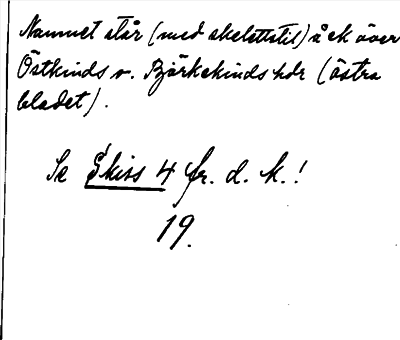 Namnet står (med skelettstil) å ek över
Östkinds o. Björkekinds hdr (östra
bladet).
Se Skiss 4 fr. d. k.!
19.